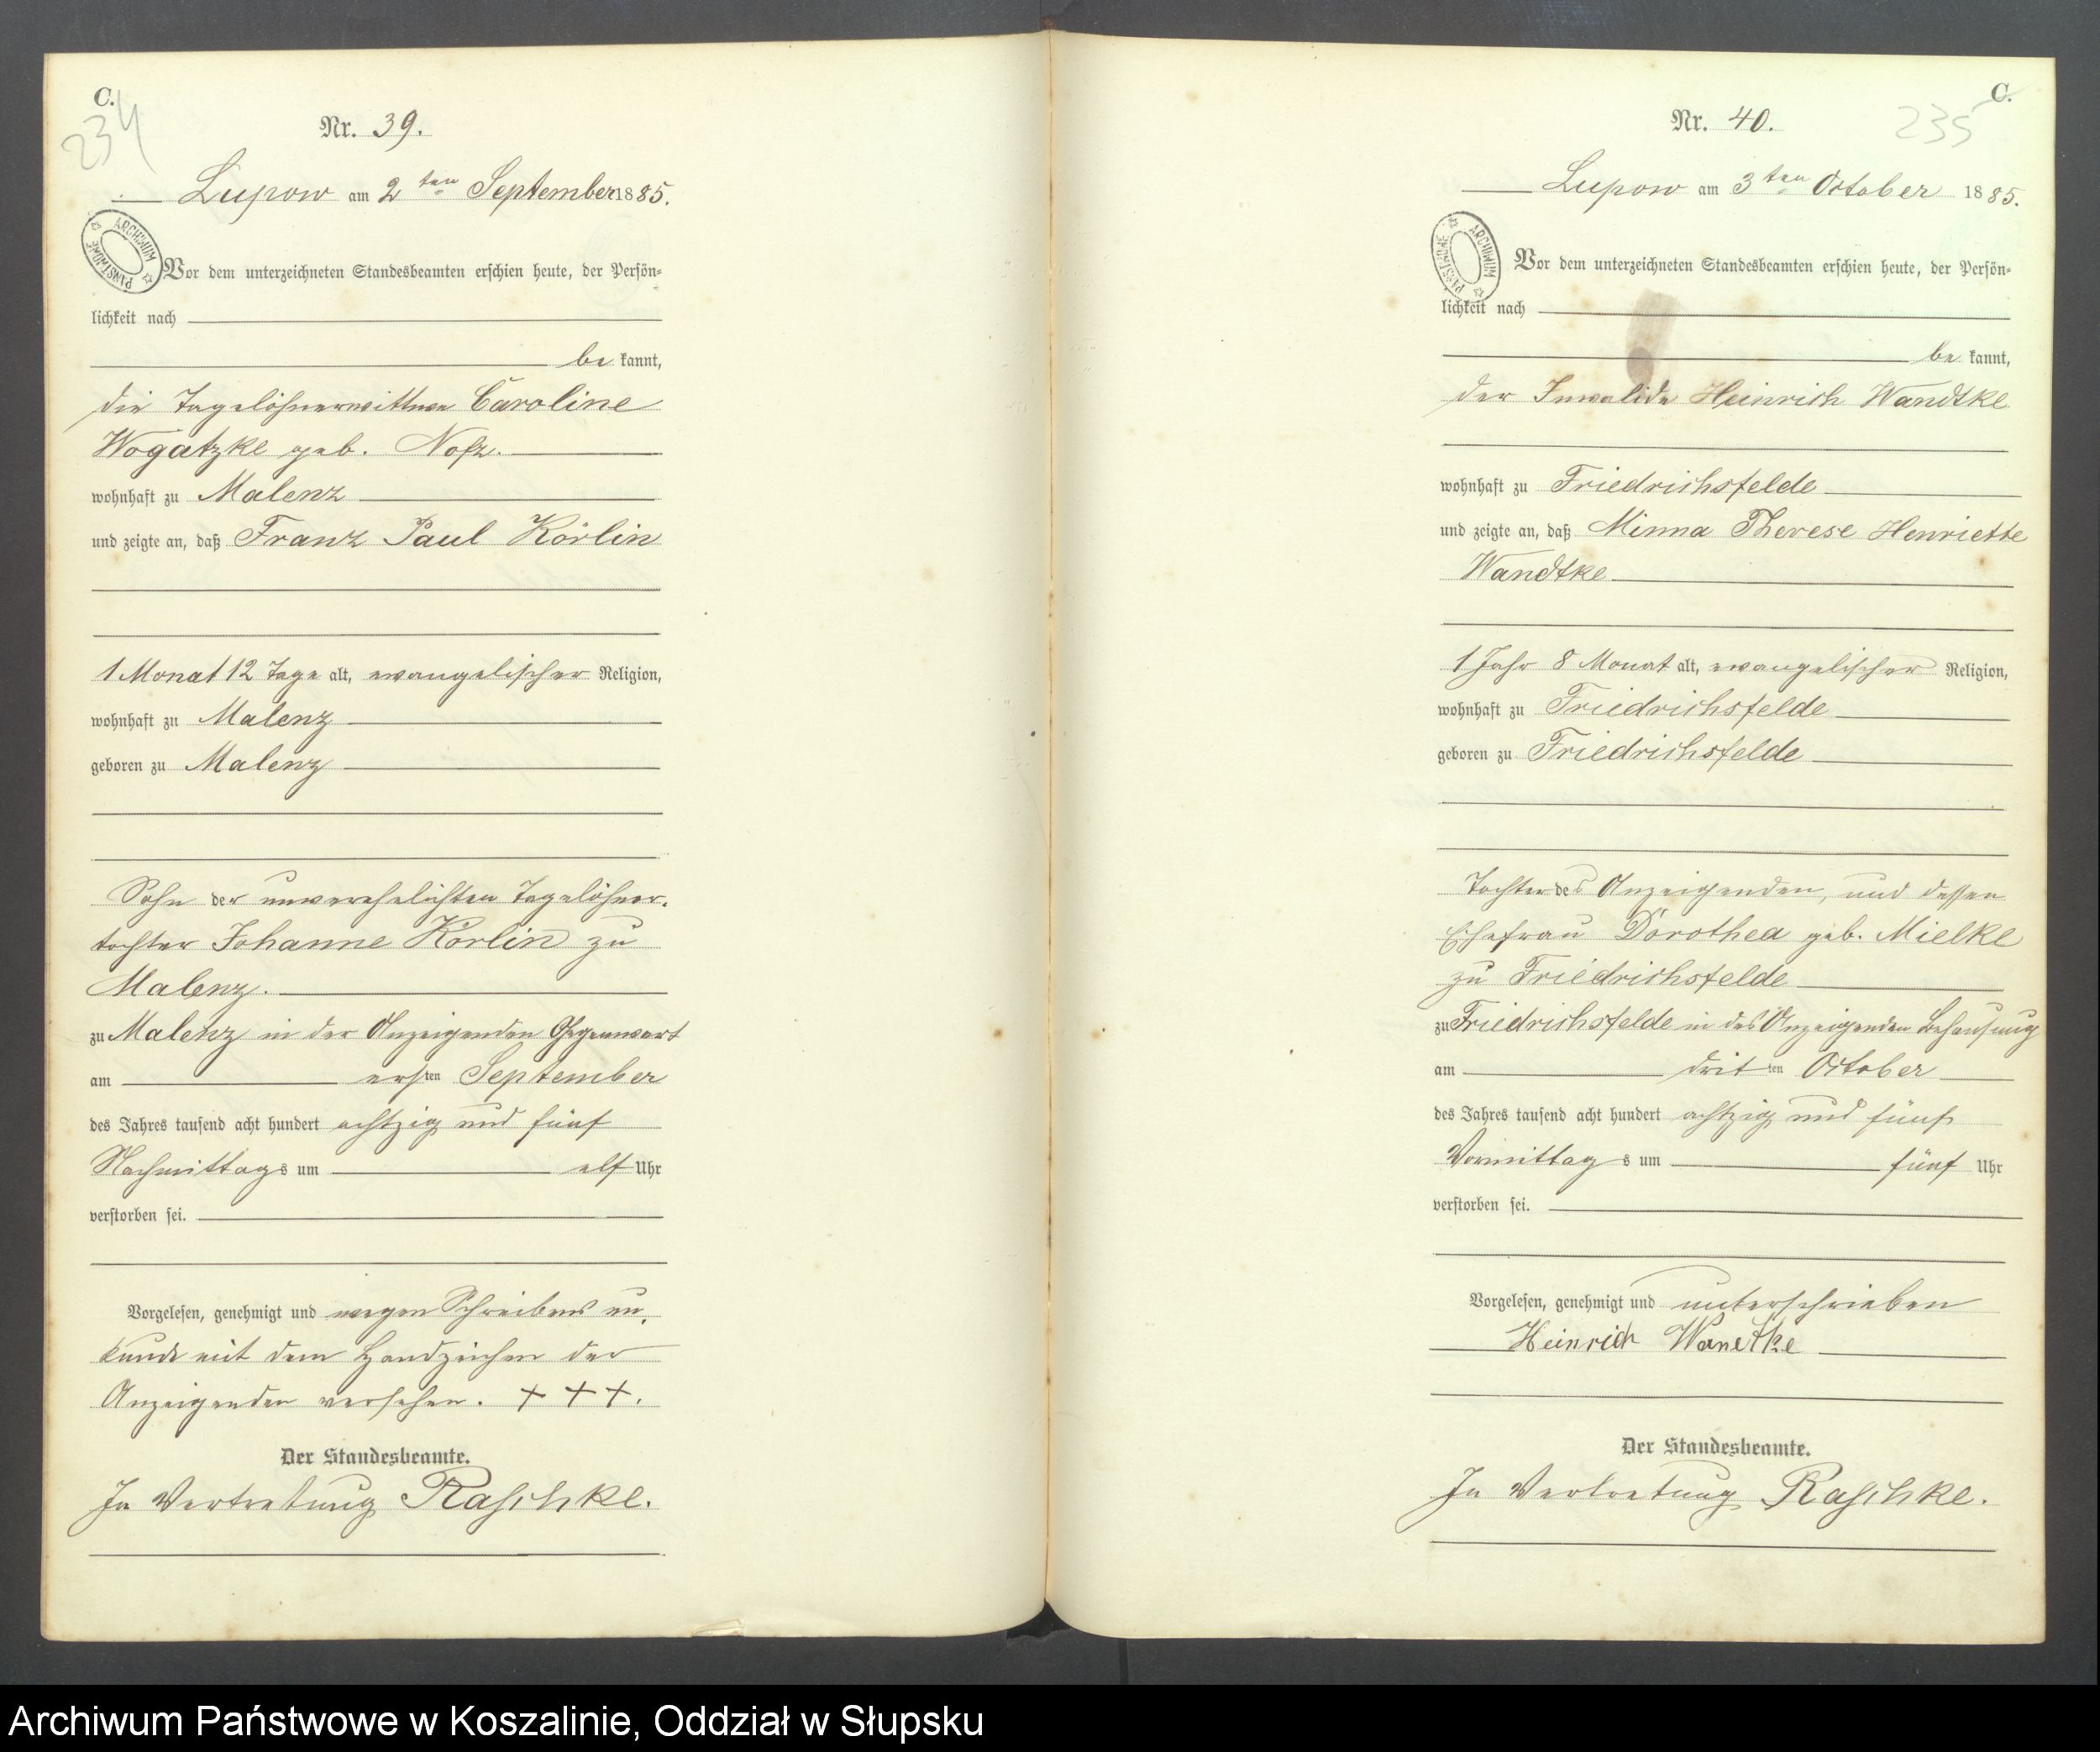 C.
234
Nr. 39.
Lupow am 2ten September 1885.
ARCHIWUM PAŃSTWOWE
Vor dem unterzeichneten Standesbeamten erschien heute, der Persön-
lichkeit nach
be kannt,
die Tagelöhnerwittwe Caroline
Wogatzke geb. Noß.
wohnhaft zu Malenz
und zeigte an, daß Franz Paul Körlin
1 Monat 12 Tage alt, evangelischer Religion,
wohnhaft zu Malenz
geboren zu Malenz
Sohn der unverehelichten Tagelöhner-
tochter Johanne Körlin zu
Malenz.
zu Malenz in der Anzeigenden Gegenwart
am ersten September
des Jahres tausend acht hundert achtzig und fünf
Nachmittags um elf Uhr
verstorben sei.
Vorgelesen, genehmigt und wegen Schreibens un-
kunde mit dem Handzeichen der
Anzeigenden versehen. + + +.
Der Standesbeamte.
In Vertretung Raschke.
C.
235
Nr. 40.
Lupow am 3ten October 1885.
ARCHIWUM PAŃSTWOWE
Vor dem unterzeichneten Standesbeamten erschien heute, der Persön-
lichkeit nach
be kannt,
der Invalide Heinrich Wandtke
wohnhaft zu Friedrichsfelde
und zeigte an, daß Minna Therese Henriette
Wandtke
1 Jahr 8 Monat alt, evangelischer Religion,
wohnhaft zu Friedrichsfelde
geboren zu Friedrichsfelde
Tochter des Anzeigenden, und dessen
Ehefrau Dorothea geb. Mielke
zu Friedrichsfelde
zu Friedrichsfelde in des Anzeigenden Behausung
am dritten October
des Jahres tausend acht hundert achtzig und fünf
Vormittags um fünf Uhr
verstorben sei.
Vorgelesen, genehmigt und unterschrieben
Heinrich Wanetke
Der Standesbeamte.
In Vertretung Raschke.
Archiwum Państwowe w Koszalinie, Oddział w Słupsku